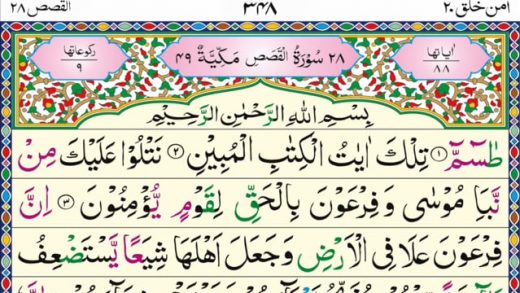 القصص ٢٨ ٣٤٨ امن خلق ٢٠
اٰياتها ٨٨ ٢٨ سُوْرَةُ الْقَصَصِ مَكِّيَّةٌ ٤٩ ركوعاتها ٩
بِسْمِ اللهِ الرَّحْمٰنِ الرَّحِيْمِ
طٰسٓمّٓ ۝١ تِلْكَ اٰيٰتُ الْكِتٰبِ الْمُبِيْنِ ۝٢ نَتْلُوْا عَلَيْكَ مِنْ
نَّبَاِ مُوْسٰى وَفِرْعَوْنَ بِالْحَقِّ لِقَوْمٍ يُّؤْمِنُوْنَ ۝٣ اِنَّ
فِرْعَوْنَ عَلَا فِى الْاَرْضِ وَجَعَلَ اَهْلَهَا شِيَعًا يَّسْتَضْعِفُ